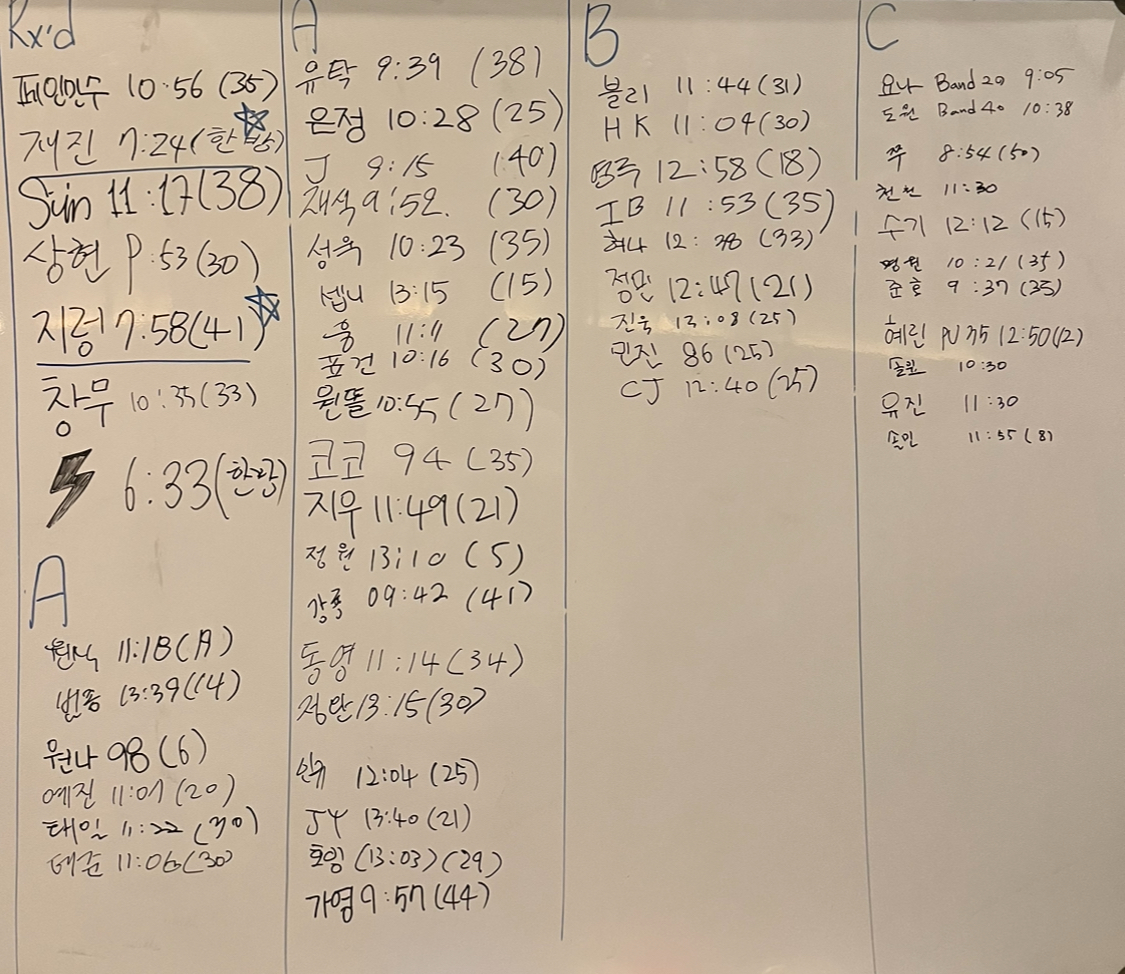 Rx'd
페인만수 10:56 (35)
재진 7:24 (한방)
Sun 11:17 (38)
상현 9:53 (30)
지렁 7:58 (41)
창무 10:35 (33)
6:33 (한광)
A
원식 11:18 (A)
번종 13:39 (14)
원나 98 (6)
예진 11:01 (20)
태일 11:22 (30)
테준 11:06 (30)
A
유탁 9:39 (38)
은정 10:28 (25)
J 9:15 (40)
재석 9:52. (30)
성욱 10:23 (35)
셉니 13:15 (15)
웅 11:11 (27)
표건 10:16 (30)
원뚤 10:55 (27)
코코 94 (35)
지우 11:49 (21)
정원 13:10 (5)
강록 09:42 (41)
동영 11:14 (34)
정안 13:15 (30)
12:04 (25)
JY 13:40 (21)
호임 (13:03) (29)
가영 9:57 (44)
B
블리 11:44 (31)
HK 11:04 (30)
영주 12:58 (18)
IB 11:53 (35)
혀나 12:38 (33)
정민 12:47 (21)
진욱 13:08 (25)
민진 86 (25)
CJ 12:40 (25)
C
요나 Band 20 9:05
도원 Band 40 10:38
쭈 8:54 (50)
천천 11:30
수기 12:12 (15)
명원 10:21 (35)
준호 9:37 (35)
혜린 PU 75 12:50 (12)
솔원 10:30
유진 11:30
솔민 11:55 (8)